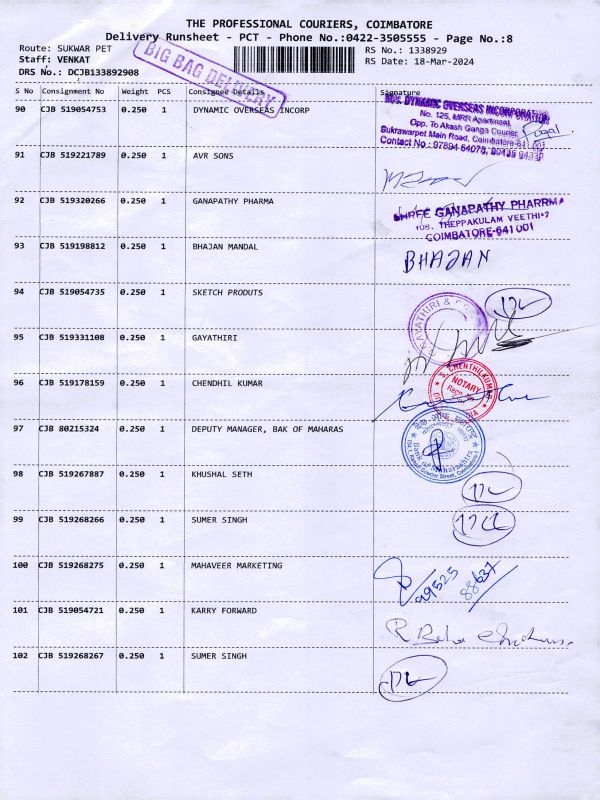 THE PROFESSIONAL COURIERS, COIMBATORE
Delivery Runsheet - PCT - Phone No.:0422-3505555 - Page No.:8
Route: SUKWAR PET
RS No.: 1338929
Staff: VENKAT
RS Date: 18-Mar-2024
DRS No.: DCJB133892908
BIG BAG DELIVERY
S No Consignment No Weight PCS Consignee Details Signature
90 CJB 519054753 0.250 1 DYNAMIC OVERSEAS INCORP
M/s. DYNAMIC OVERSEAS INCORPORATION
No. 125, MRR Apartment,
Opp. To Akash Ganga Courier,
Sukrawarpet Main Road, Coimbatore-641 001
Contact No : 97894 64078,
91 CJB 519221789 0.250 1 AVR SONS
92 CJB 519320266 0.250 1 GANAPATHY PHARMA
SHREE GANAPATHY PHARRMA
108, THEPPAKULAM VEETHI-7
COIMBATORE-641 001
93 CJB 519198812 0.250 1 BHAJAN MANDAL
BHAJAN
94 CJB 519054735 0.250 1 SKETCH PRODUTS
95 CJB 519331108 0.250 1 GAYATHIRI
GAYATHIRI &
96 CJB 519178159 0.250 1 CHENDHIL KUMAR
CHENTHILKUMAR
NOTARY
Regn. No.
97 CJB 80215324 0.250 1 DEPUTY MANAGER, BAK OF MAHARAS
Bank of Maharashtra
98 CJB 519267887 0.250 1 KHUSHAL SETH
99 CJB 519268266 0.250 1 SUMER SINGH
100 CJB 519268275 0.250 1 MAHAVEER MARKETING
99525
88637
101 CJB 519054721 0.250 1 KARRY FORWARD
102 CJB 519268267 0.250 1 SUMER SINGH